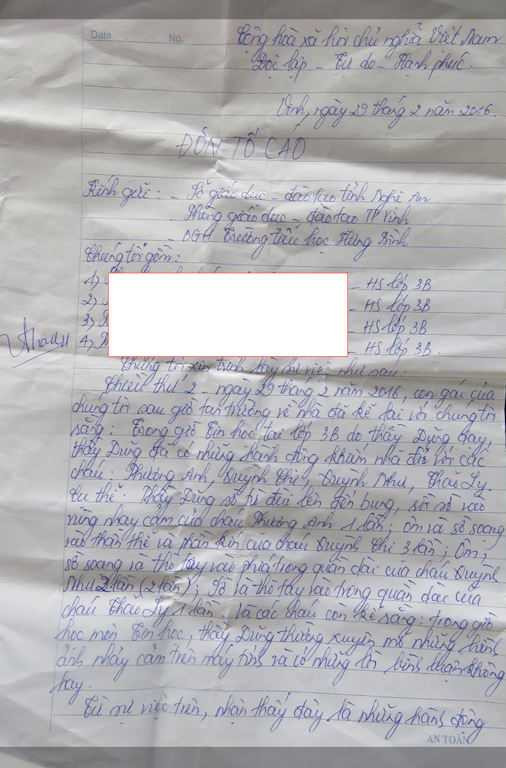 Date No.
Cộng hòa xã hội chủ nghĩa Việt Nam
Độc lập - Tự do - Hạnh phúc.
Vinh, ngày 29 tháng 2 năm 2016.
ĐƠN TỐ CAO
Kính gửi: - Sở giáo dục - đào tạo tỉnh Nghệ An
Phòng giáo dục - đào tạo TP Vinh
- BGH Trường tiểu học Hưng Bình
Chúng tôi gồm:
1) - HS lớp 3B
2) - HS lớp 3B
3) - HS lớp 3B
4) - HS lớp 3B.
Chúng tôi xin trình bày sự việc như sau:
Chiều thứ 2, ngày 29 tháng 2 năm 2016, con gái của
chúng tôi sau giờ tan trường về nhà đã kể lại với chúng tôi
rằng: Trong giờ Tin học tại lớp 3B do thầy Dũng dạy,
thầy Dũng đã có những hành động khiếm nhã đối với các
cháu: Phương Anh, Quỳnh Chi, Quỳnh Như, Thảo Ly.
Cụ thể: Thầy Dũng sờ từ đùi lên đến bụng, sờ vào
vùng nhạy cảm của cháu Phương Anh 1 lần; ôm và sờ soạng
vào thân thể và phần kín của cháu Quỳnh Chi 3 lần; Ôm,
sờ soạng và thò tay vào phía trong quần dài của cháu Quỳnh
Như 2 lần (2 lần); Sờ và thò tay vào trong quần dài của
cháu Thảo Ly 1 lần. Và các cháu còn kể rằng: trong giờ
học môn Tin học, thầy Dũng thường xuyên mở những hình
ảnh nhạy cảm trên máy tính và có những lời bình luận không
hay.
Từ sự việc trên, nhận thấy đây là những hành động
AN TOÀN